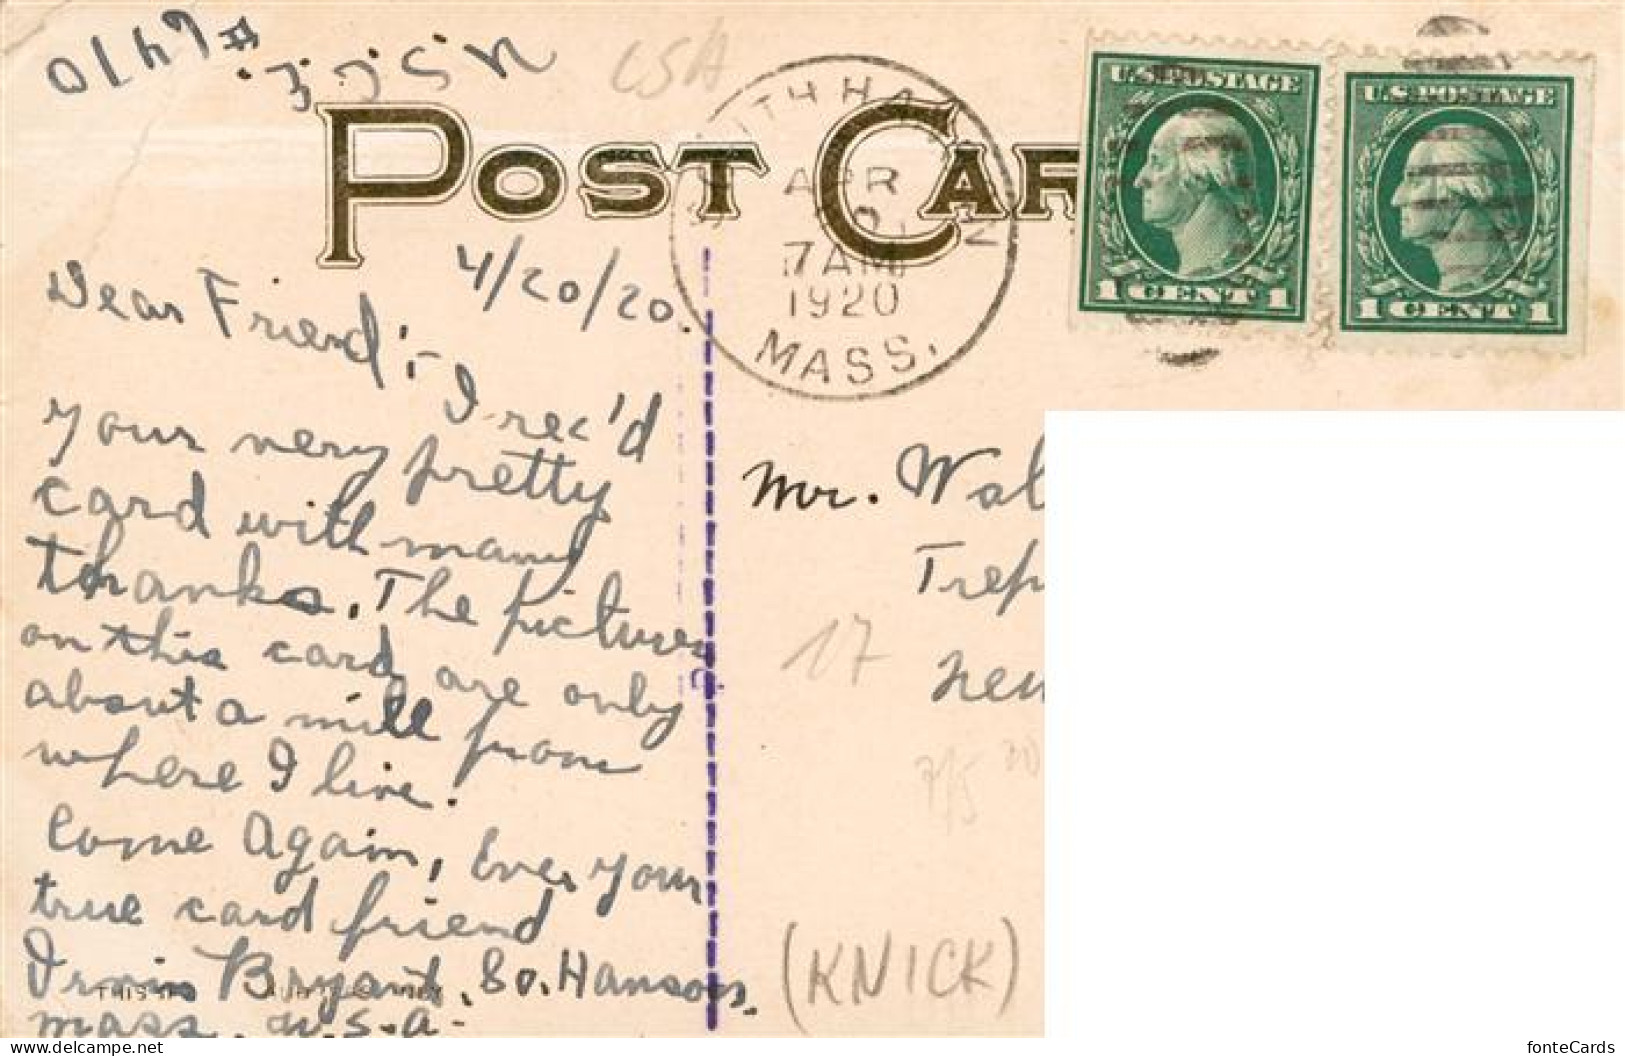 U.S.C.C.
#64/10
USA
POST CAR
4/20/20.
Dear Friend:-
I rec'd
your very pretty
card with many
thanks. The pictures
on this card are only
about a mill from
where I live.
Come Again, Ever your
true card friend
Irwin Bryant, So. Hanson.
mass. U.S.A.
THIS
APR
7 AM
1920
MASS.
U.S. POSTAGE
1 CENT 1
U.S. POSTAGE
1 CENT 1
Mr. Wal
Trep
New
17
(KNICK)
fonteCards
www.delcampe.net